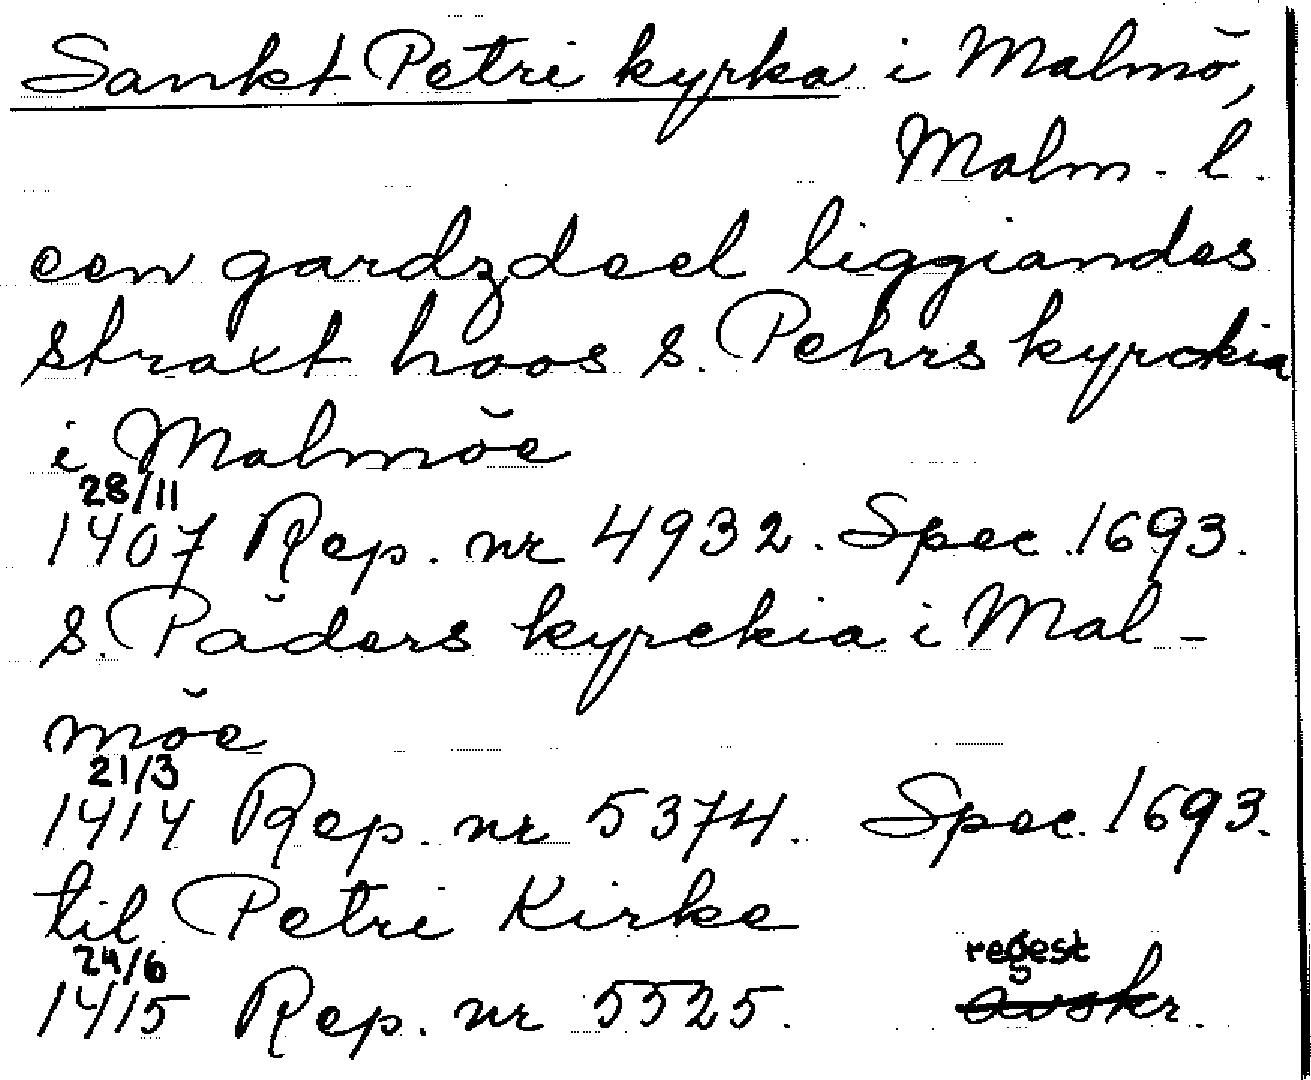 Sankt Petri kyrka i Malmö,
Malm. l.
een gardzdeel liggiandes
straxt hoos s. Pehrs kyrckia
i Malmöe
28/11
1407 Rep. nr 4932. Spec 1693.
s. Päders kyrckia i Mal-
möe
21/3
1414 Rep. nr 5374. Spec. 1693.
til Petri Kirke
24/6 regest
1415 Rep. nr 5525. avskr.